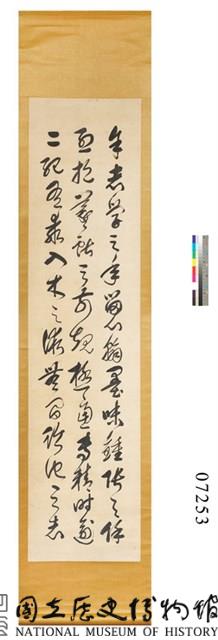 余志學之年留心翰墨味鍾張之餘
烈挹羲獻之前規極慮專精時逾
二紀有乖入木之術無間臨池之志
07253
國立歷史博物館
NATIONAL MUSEUM OF HISTORY